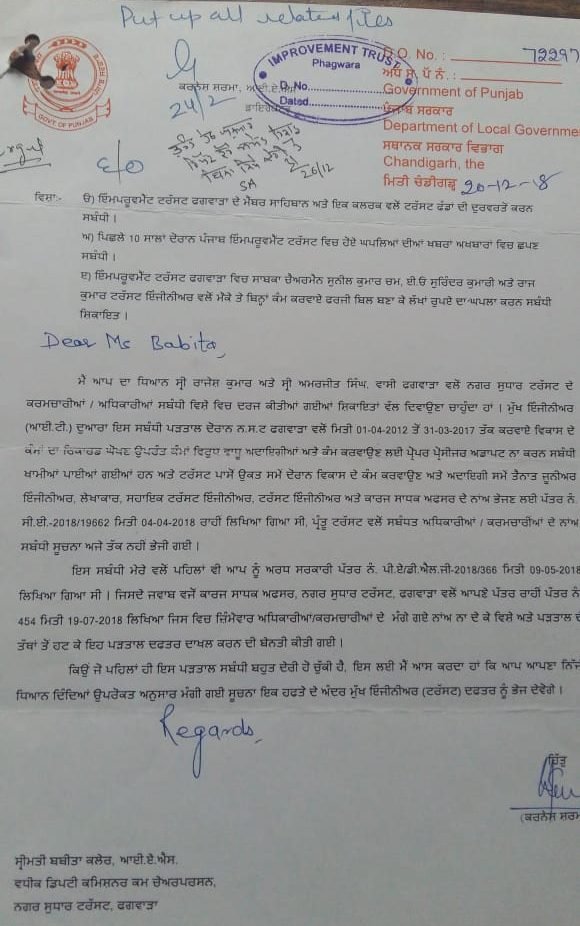 Put up all related files
IMPROVEMENT TRUST
Phagwara
D. No.
Dated
D.O. No. : 72297
ਅਧ ਸ. ਪੱ ਨੰ. :
ਕਰਨੇਸ਼ ਸ਼ਰਮਾ, ਆਈ.ਏ.ਐਸ.
Government of Punjab
24/2
ਡਾਇਰੈਕਟਰ
ਪੰਜਾਬ ਸਰਕਾਰ
Department of Local Government
ਸਥਾਨਕ ਸਰਕਾਰ ਵਿਭਾਗ
GOVT. OF PUNJAB
Chandigarh, the
E/O
SA
26/12
ਮਿਤੀ ਚੰਡੀਗੜ੍ਹ 20-12-18
ਵਿਸ਼ਾ:- ੳ) ਇੰਮਪਰੂਵਮੈਂਟ ਟਰੱਸਟ ਫਗਵਾੜਾ ਦੇ ਮੈਂਬਰ ਸਾਹਿਬਾਨ ਅਤੇ ਇਕ ਕਲਰਕ ਵਲੋਂ ਟਰੱਸਟ ਫੰਡਾਂ ਦੀ ਦੁਰਵਰਤੋਂ ਕਰਨ
ਸਬੰਧੀ ।
ਅ) ਪਿਛਲੇ 10 ਸਾਲਾਂ ਦੌਰਾਨ ਪੰਜਾਬ ਇੰਮਪਰੂਵਮੈਂਟ ਟਰੱਸਟ ਵਿਚ ਹੋਏ ਘਪਲਿਆਂ ਦੀਆਂ ਖਬਰਾਂ ਅਖਬਾਰਾਂ ਵਿਚ ਛਪਣ
ਸਬੰਧੀ ।
ੲ) ਇੰਮਪਰੂਵਮੈਂਟ ਟਰੱਸਟ ਫਗਵਾੜਾ ਵਿਚ ਸਾਬਕਾ ਚੇਅਰਮੈਨ ਸੁਨੀਲ ਕੁਮਾਰ ਚਮ, ਈ.ਓ ਸੁਰਿੰਦਰ ਕੁਮਾਰੀ ਅਤੇ ਰਾਜ
ਕੁਮਾਰ ਟਰੱਸਟ ਇੰਜੀਨੀਅਰ ਵਲੋਂ ਮੌਕੇ ਤੇ ਬਿਨ੍ਹਾਂ ਕੰਮ ਕਰਵਾਏ ਫਰਜੀ ਬਿਲ ਬਣਾ ਕੇ ਲੱਖਾਂ ਰੁਪਏ ਦਾ ਘਪਲਾ ਕਰਨ ਸਬੰਧੀ
ਸ਼ਿਕਾਇਤ ।
Dear Ms Babita,
ਮੈਂ ਆਪ ਦਾ ਧਿਆਨ ਸ੍ਰੀ ਰਾਜੇਸ਼ ਕੁਮਾਰ ਅਤੇ ਸ੍ਰੀ ਅਮਰਜੀਤ ਸਿੰਘ, ਵਾਸੀ ਫਗਵਾੜਾ ਵਲੋਂ ਨਗਰ ਸੁਧਾਰ ਟਰੱਸਟ ਦੇ
ਕਰਮਚਾਰੀਆਂ / ਅਧਿਕਾਰੀਆਂ ਸਬੰਧੀ ਵਿਸ਼ੇ ਵਿਚ ਦਰਜ ਕੀਤੀਆਂ ਗਈਆਂ ਸ਼ਿਕਾਇਤਾਂ ਵੱਲ ਦਿਵਾਉਣਾ ਚਾਹੁੰਦਾ ਹਾਂ । ਮੁੱਖ ਇੰਜੀਨੀਅਰ
(ਆਈ.ਟੀ.) ਦੁਆਰਾ ਇਸ ਸਬੰਧੀ ਪੜਤਾਲ ਦੌਰਾਨ ਨ.ਸ.ਟ ਫਗਵਾੜਾ ਵਲੋਂ ਮਿਤੀ 01-04-2012 ਤੋਂ 31-03-2017 ਤੱਕ ਕਰਵਾਏ ਵਿਕਾਸ ਦੇ
ਕੰਮਾਂ ਦਾ ਰਿਕਾਰਡ ਘੋਖਣ ਉਪਰੰਤ ਕੰਮਾਂ ਵਿਰੁਧ ਵਾਧੂ ਅਦਾਇਗੀਆਂ ਅਤੇ ਕੰਮ ਕਰਵਾਉਣ ਲਈ ਪ੍ਰੋਪਰ ਪ੍ਰੋਸੀਜਰ ਅਡਾਪਟ ਨਾ ਕਰਨ ਸਬੰਧੀ
ਖਾਮੀਆਂ ਪਾਈਆਂ ਗਈਆਂ ਹਨ ਅਤੇ ਟਰੱਸਟ ਪਾਸੋਂ ਉਕਤ ਸਮੇਂ ਦੌਰਾਨ ਵਿਕਾਸ ਦੇ ਕੰਮ ਕਰਵਾਉਣ ਅਤੇ ਅਦਾਇਗੀ ਸਮੇਂ ਤੈਨਾਤ ਜੂਨੀਅਰ
ਇੰਜੀਨੀਅਰ, ਲੇਖਾਕਾਰ, ਸਹਾਇਕ ਟਰੱਸਟ ਇੰਜੀਨੀਅਰ, ਟਰੱਸਟ ਇੰਜੀਨੀਅਰ ਅਤੇ ਕਾਰਜ ਸਾਧਕ ਅਫਸਰ ਦੇ ਨਾਂਅ ਭੇਜਣ ਲਈ ਪੱਤਰ ਨੰ.
ਸੀ.ਈ.-2018/19662 ਮਿਤੀ 04-04-2018 ਰਾਹੀਂ ਲਿਖਿਆ ਗਿਆ ਸੀ, ਪ੍ਰੰਤੂ ਟਰੱਸਟ ਵਲੋਂ ਸਬੰਧਤ ਅਧਿਕਾਰੀਆਂ / ਕਰਮਚਾਰੀਆਂ ਦੇ ਨਾਂਅ
ਸਬੰਧੀ ਸੂਚਨਾ ਅਜੇ ਤੱਕ ਨਹੀਂ ਭੇਜੀ ਗਈ ।
ਇਸ ਸਬੰਧੀ ਮੇਰੇ ਵਲੋਂ ਪਹਿਲਾਂ ਵੀ ਆਪ ਨੂੰ ਅਰਧ ਸਰਕਾਰੀ ਪੱਤਰ ਨੰ. ਪੀ.ਏ/ਡੀ.ਐਲ.ਜੀ-2018/366 ਮਿਤੀ 09-05-2018
ਲਿਖਿਆ ਗਿਆ ਸੀ । ਜਿਸਦੇ ਜਵਾਬ ਵਜੋਂ ਕਾਰਜ ਸਾਧਕ ਅਫਸਰ, ਨਗਰ ਸੁਧਾਰ ਟਰੱਸਟ, ਫਗਵਾੜਾ ਵਲੋਂ ਆਪਣੇ ਪੱਤਰ ਰਾਹੀਂ ਪੱਤਰ ਨੰ
454 ਮਿਤੀ 19-07-2018 ਲਿਖਿਆ ਜਿਸ ਵਿਚ ਜ਼ਿੰਮੇਵਾਰ ਅਧਿਕਾਰੀਆਂ/ਕਰਮਚਾਰੀਆਂ ਦੇ ਮੰਗੇ ਗਏ ਨਾਂਅ ਨਾ ਦੇ ਕੇ ਵਿਸ਼ੇ ਅਤੇ ਪੜਤਾਲ ਦੇ
ਤੱਥਾਂ ਤੋਂ ਹਟ ਕੇ ਇਹ ਪੜਤਾਲ ਦਫਤਰ ਦਾਖਲ ਕਰਨ ਦੀ ਬੇਨਤੀ ਕੀਤੀ ਗਈ ।
ਕਿਉਂ ਜੋ ਪਹਿਲਾਂ ਹੀ ਇਸ ਪੜਤਾਲ ਸਬੰਧੀ ਬਹੁਤ ਦੇਰੀ ਹੋ ਚੁੱਕੀ ਹੈ, ਇਸ ਲਈ ਮੈਂ ਆਸ ਕਰਦਾ ਹਾਂ ਕਿ ਆਪ ਆਪਣਾ ਨਿੱਜੀ
ਧਿਆਨ ਦਿੰਦਿਆਂ ਉਪਰੋਕਤ ਅਨੁਸਾਰ ਮੰਗੀ ਗਈ ਸੂਚਨਾ ਇਕ ਹਫਤੇ ਦੇ ਅੰਦਰ ਮੁੱਖ ਇੰਜੀਨੀਅਰ (ਟਰੱਸਟ) ਦਫਤਰ ਨੂੰ ਭੇਜ ਦੇਵੋਗੇ ।
Regards,
ਹਿੱਤੂ
(ਕਰਨੇਸ਼ ਸ਼ਰਮਾ
ਸ੍ਰੀਮਤੀ ਬਬੀਤਾ ਕਲੇਰ, ਆਈ.ਏ.ਐਸ.
ਵਧੀਕ ਡਿਪਟੀ ਕਮਿਸ਼ਨਰ ਕਮ ਚੇਅਰਪਰਸਨ,
ਨਗਰ ਸੁਧਾਰ ਟਰੱਸਟ, ਫਗਵਾੜਾ